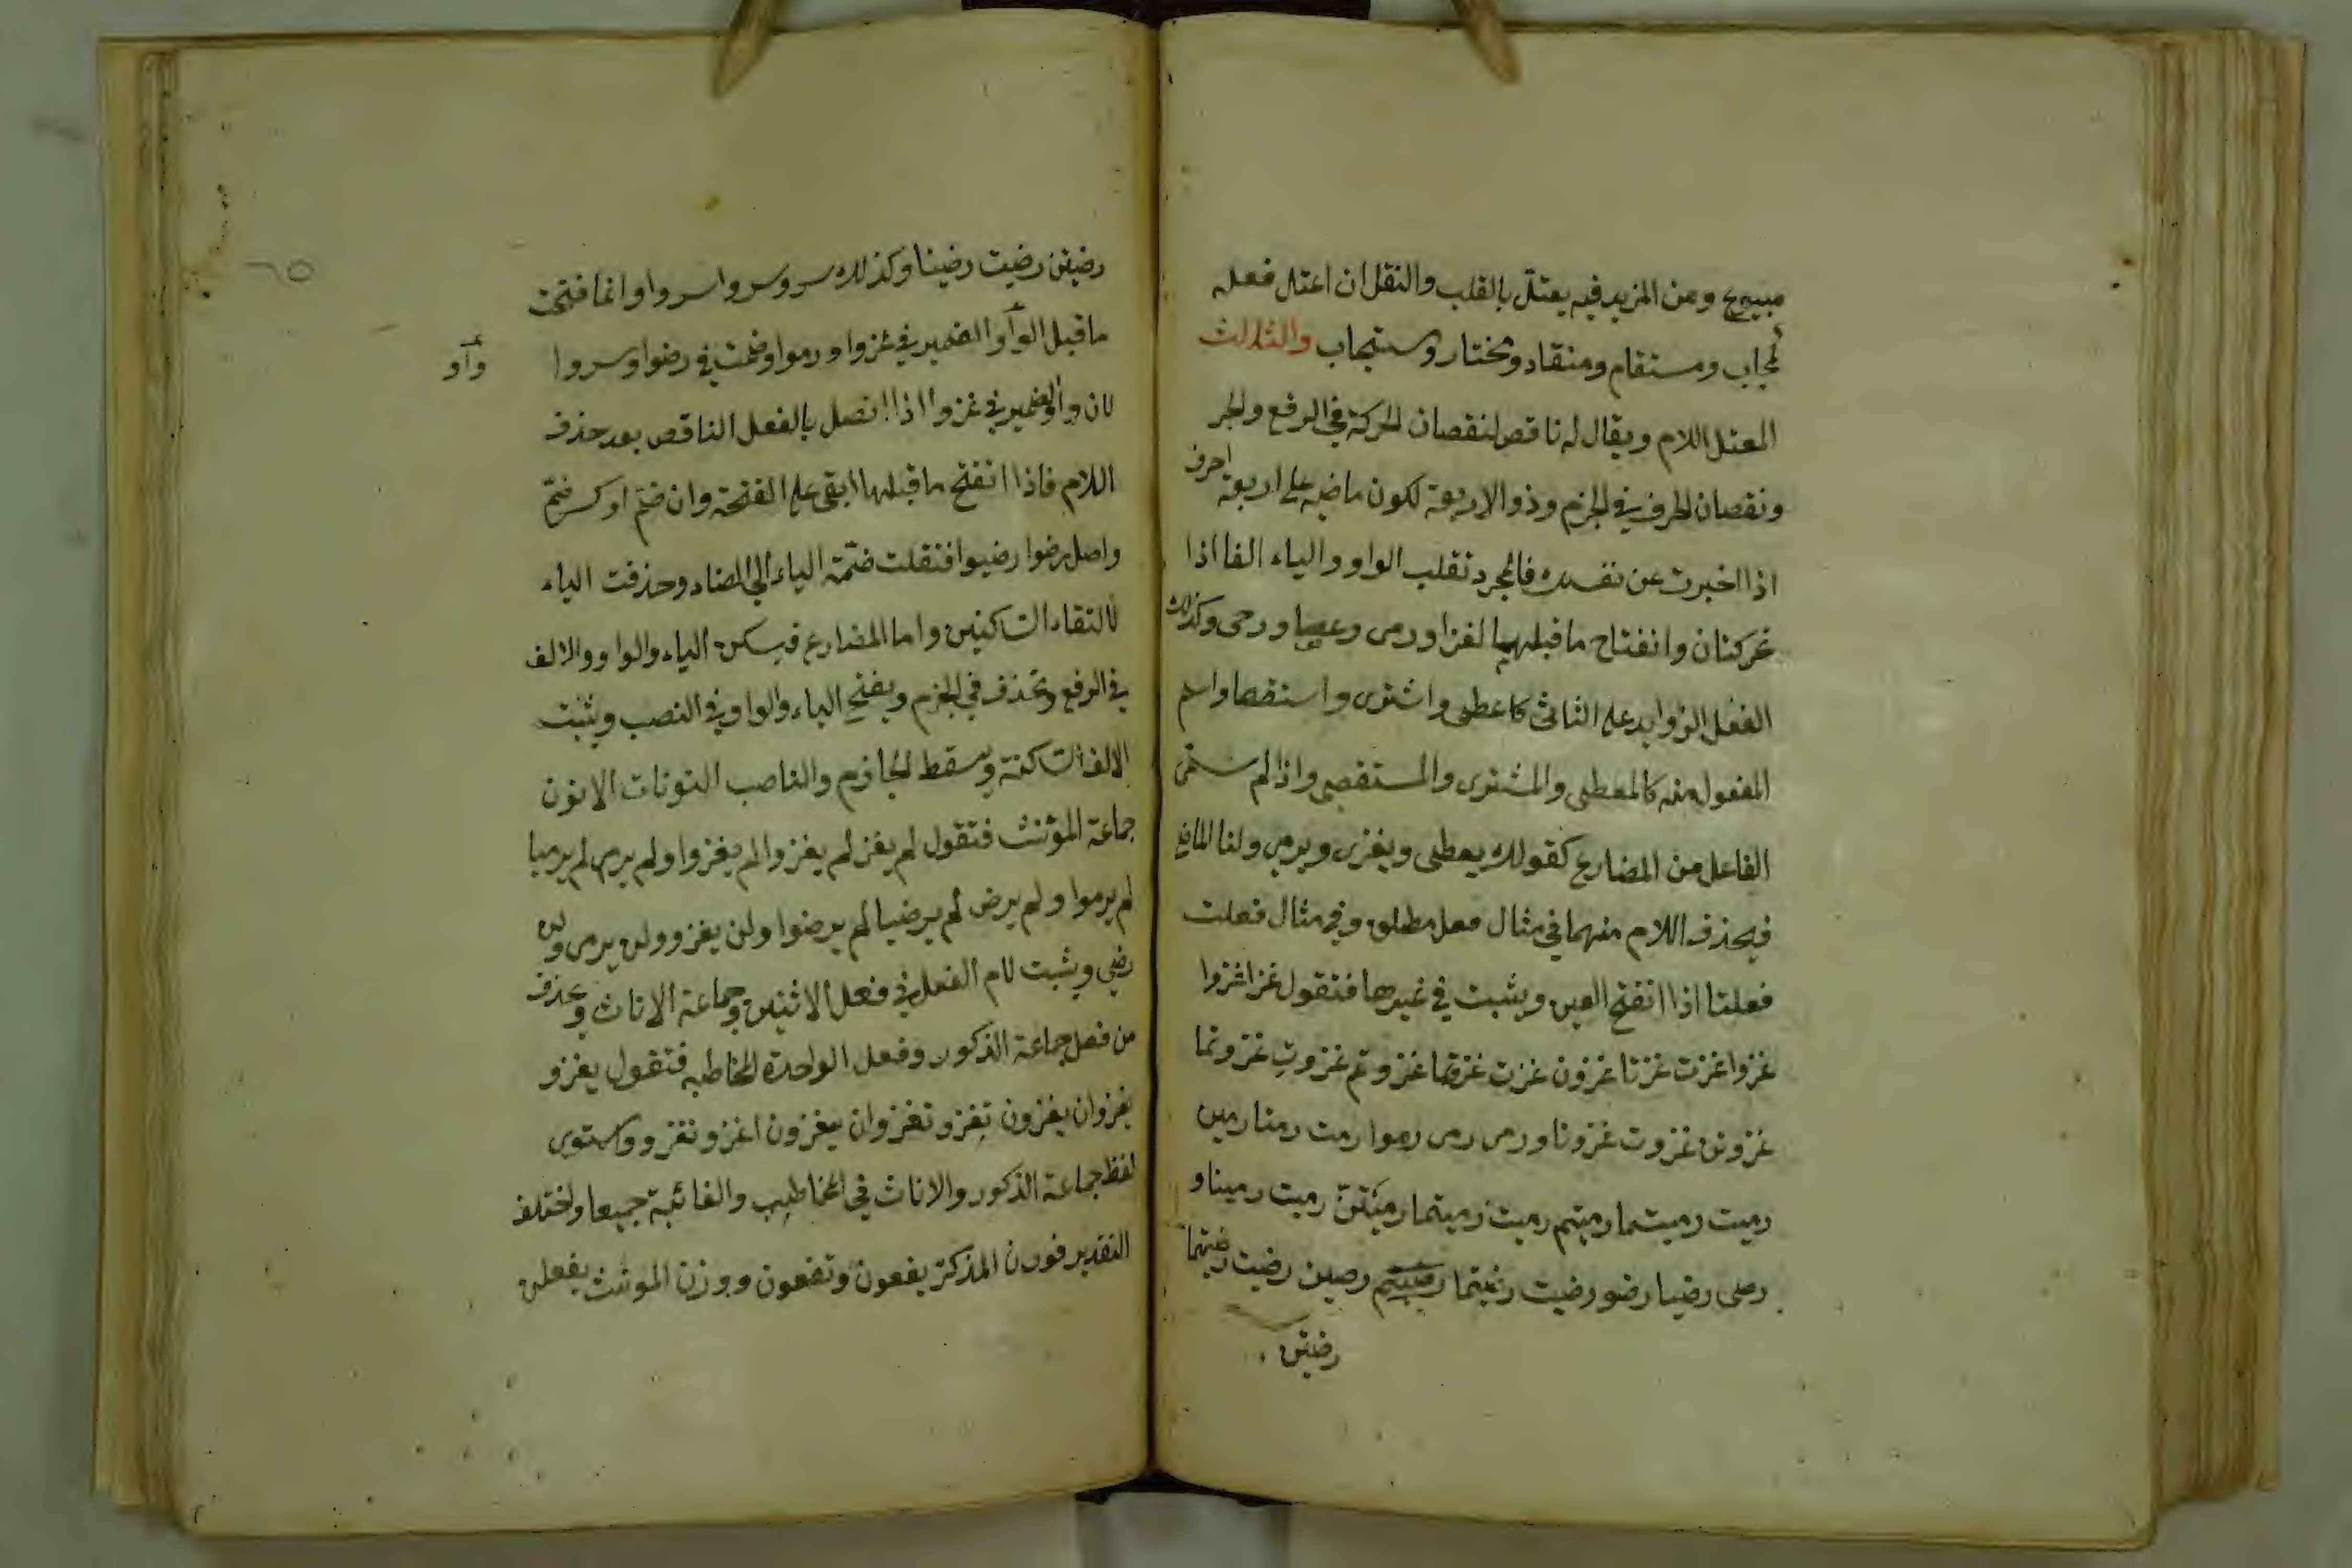 مبيوع ومن المزيد فيه يعتل بالقلب والنقل ان اعتل فعله
كمجاب ومستقام ومنقاد ومختار ومستجاب والثالث
المعتل اللام ويقال له ناقص لنقصان الحركة في الرفع والجر
ونقصان الحرف في الجزم وذو الاربعة لكون ماضيه على اربعة احرف
اذا اخبرت عن نفسك فالمجرد تقلب الواو والياء الفا اذا
تحركتان وانفتاح ما قبلهما لغزا ورمى وعصا ورحى وكذلك
الفعل الزوايد على الثلاثى كاعطى واشترى واستقصا واسم
المفعول منه كالمعطى والمشترى والمستقصى واذا لم تسم
الفاعل من المضارع كقولك يعطى ويغزى ويرمى ولنا الماضى
فيحذف اللام منهما في مثال فعل مطلق وفي مثال فعلت
فعلتا اذا انفتح العين ويثبت في غيرها فتقول غزا غزوا
غزوا غزت غزتا غزون غزت غزوتما غزوتم غزوت غزوتما
غزوتن غزوت غزونا ورمى رمى رموا رمت رمتا رمين
رميت رميتما رميتم رميت رميتما رميتن رميت رمينا و
رضى رضيا رضو رضيت رضيتما رضيتم رضين رضيت رضيتما
رضيتن
رضيتن رضيت رضينا وكذلك سرو سروا سروا وانما فتحت
ما قبل الواو الضمير في غزوا ورموا وضمت في رضوا وسروا
واو
لان واو الضمير في غزوا اذا اتصل بالفعل الناقص بعد حذف
اللام فاذا انفتح ما قبلها ابقى على الفتحة وان ضم او كسر ضم
واصل رضوا رضيوا فنقلت ضمة الياء الى الضاد وحذفت الياء
لالتقاء الساكنين واما المضارع فيسكن الياء والواو والالف
في الرفع وتحذف في الجزم ويفتح الياء والواو في النصب ويثبت
الالف الساكنة ويسقط الجازم والناصب النونات الا نون
جماعة المؤنث فتقول لم يغز لم يغزوا لم يغزوا ولم يرم لم يرميا
لم يرموا ولم يرض لم يرضيا لم يرضوا ولن يغزو ولن يرمى ولن
رضى ويثبت لام الفعل في فعل الاثنين وجماعة الاناث ويحذف
من فعل جماعة الذكور وفعل الواحدة المخاطبه فتقول يغزو
يغزوان يغزون تغزو تغزوان يغزون اغزو نغزو ويستوى
لفظ جماعة الذكور والاناث في المخاطب والغائبة جميعا ولختلف
التقدير فوزن المذكر يفعون وتفعون ووزن المونث يفعلن
٦٥